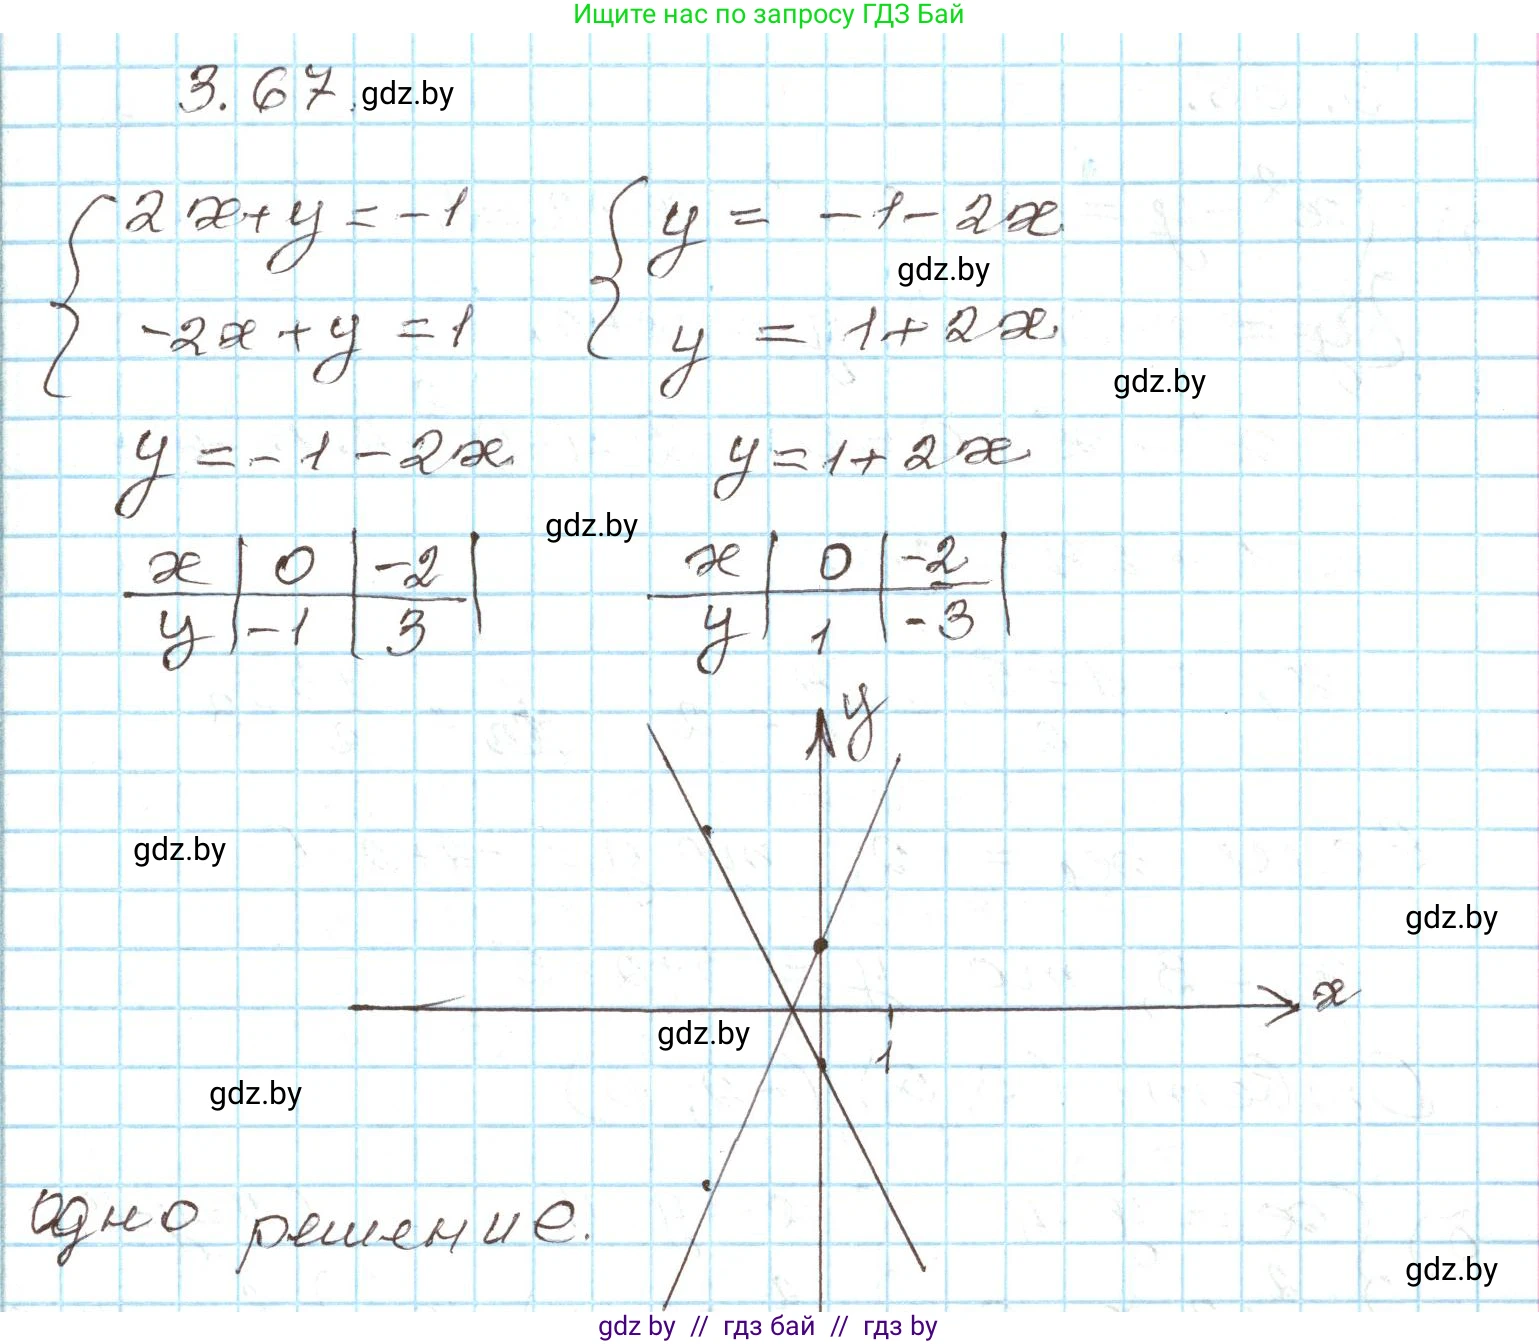 Ищите нас по запросу ГДЗ Бай
3.67. gdz.by
2x+y=-1 y = -1-2x
gdz.by
-2x+y=1 y = 1+2x
gdz.by
y=-1-2x y=1+2x
gdz.by
x 0 -2 x 0 -2
y -1 3 y 1 -3
y
gdz.by
gdz.by
x
gdz.by
1
gdz.by
одно решение.
gdz.by
gdz by // гдз бай // гдз by